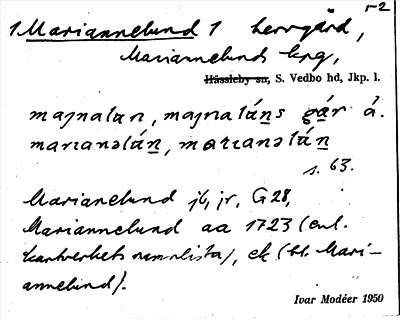 1-2
1 Mariannelund 1 herrgård,
Mariannelunds kpg,
Hässleby sn, S. Vedbo hd, Jkp. l.
majnalun, majnalúns går å.
marıanəlún, marıanəlún
s. 63.
Marianelund jb, jr, G 28,
Mariannelund aa 1723 (enl.
kartverkets namnlista), ek (bl. Mari-
annelund).
Ivar Modéer 1950